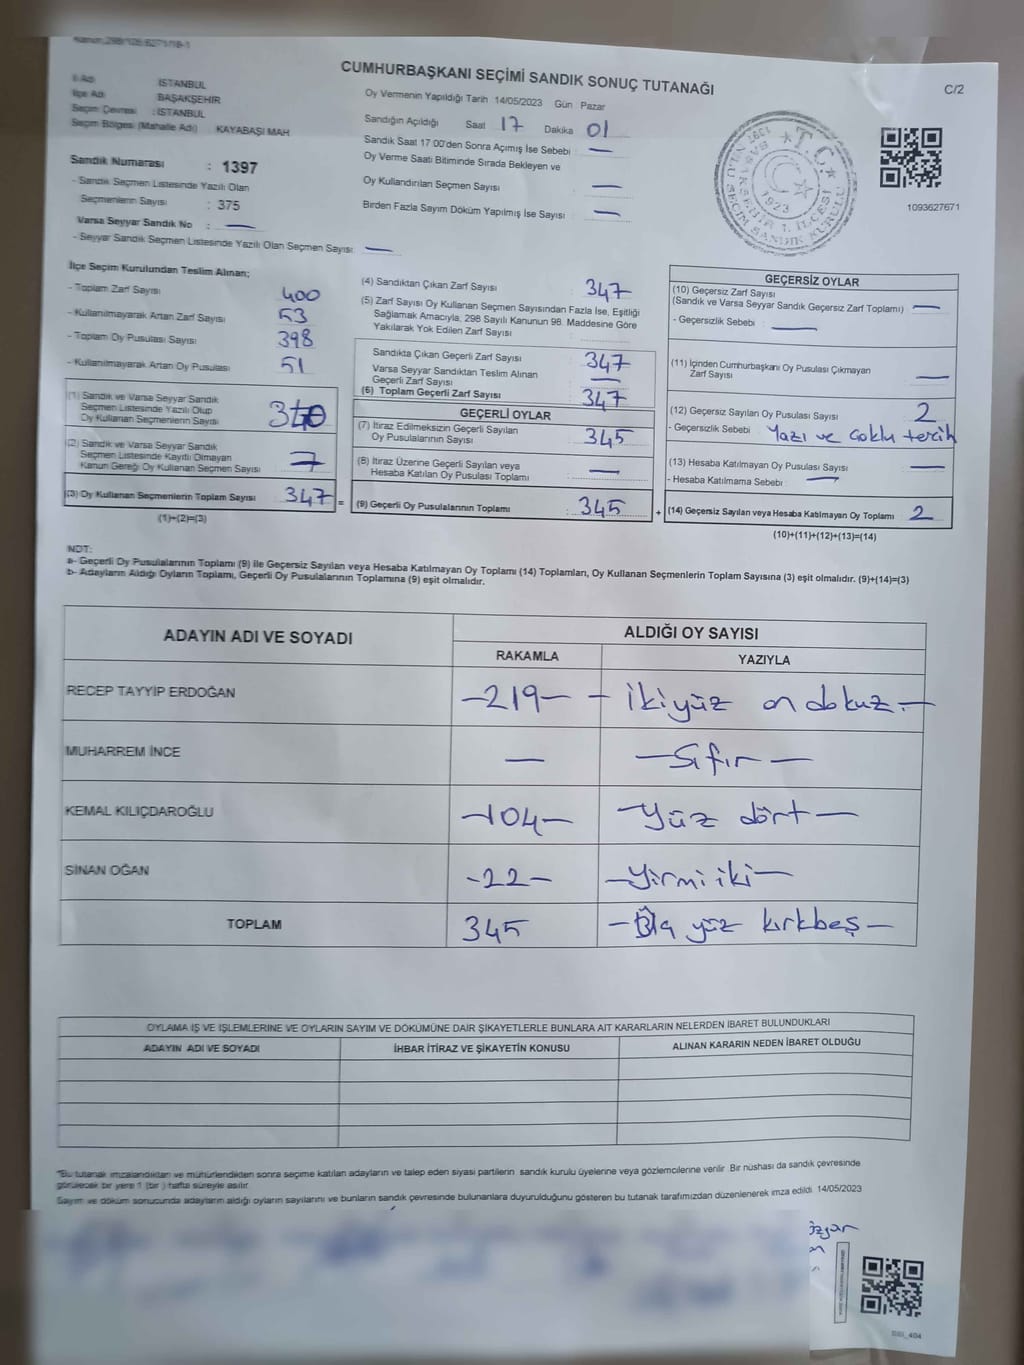 Kanun:298/105,6271/18-1
CUMHURBAŞKANI SEÇİMİ SANDIK SONUÇ TUTANAĞI
C/2
İl Adı : İSTANBUL
İlçe Adı : BAŞAKŞEHİR
Seçim Çevresi : İSTANBUL
Seçim Bölgesi (Mahalle Adı) KAYABAŞI MAH
Sandık Numarası : 1397
- Sandık Seçmen Listesinde Yazılı Olan
Seçmenlerin Sayısı : 375
Varsa Seyyar Sandık No : —
- Seyyar Sandık Seçmen Listesinde Yazılı Olan Seçmen Sayısı: —
Oy Vermenin Yapıldığı Tarih 14/05/2023 Gün Pazar
Sandığın Açıldığı Saat 17 Dakika 01
Sandık Saat 17:00'den Sonra Açımış İse Sebebi : —
Oy Verme Saati Bitiminde Sırada Bekleyen ve
Oy Kullandırılan Seçmen Sayısı : —
Birden Fazla Sayım Döküm Yapılmış İse Sayısı : —
T.C.
BAŞAKŞEHİR 1. İLÇESİ
1397 NOLU SEÇİM SANDIK KURULU
1923
1093627671
İlçe Seçim Kurulundan Teslim Alınan;
- Toplam Zarf Sayısı 400
- Kullanılmayarak Artan Zarf Sayısı 53
- Toplam Oy Pusulası Sayısı 398
- Kullanılmayarak Artan Oy Pusulası 51
(1) Sandık ve Varsa Seyyar Sandık
Seçmen Listesinde Yazılı Olup
Oy Kullanan Seçmenlerin Sayısı 340
(2) Sandık ve Varsa Seyyar Sandık
Seçmen Listesinde Kayıtlı Olmayan
Kanun Gereği Oy Kullanan Seçmen Sayısı 7
(3) Oy Kullanan Seçmenlerin Toplam Sayısı 347 =
(1)+(2)=(3)
(4) Sandıktan Çıkan Zarf Sayısı : 347
(5) Zarf Sayısı Oy Kullanan Seçmen Sayısından Fazla İse, Eşitliği
Sağlamak Amacıyla, 298 Sayılı Kanunun 98. Maddesine Göre
Yakılarak Yok Edilen Zarf Sayısı :
Sandıkta Çıkan Geçerli Zarf Sayısı : 347
Varsa Seyyar Sandıktan Teslim Alınan
Geçerli Zarf Sayısı : —
(6) Toplam Geçerli Zarf Sayısı : 347
GEÇERLİ OYLAR
(7) İtiraz Edilmeksizin Geçerli Sayılan
Oy Pusulalarının Sayısı : 345
(8) İtiraz Üzerine Geçerli Sayılan veya
Hesaba Katılan Oy Pusulası Toplamı : —
(9) Geçerli Oy Pusulalarının Toplamı : 345 +
GEÇERSİZ OYLAR
(10) Geçersiz Zarf Sayısı
(Sandık ve Varsa Seyyar Sandık Geçersiz Zarf Toplamı) : —
- Geçersizlik Sebebi : —
(11) İçinden Cumhurbaşkanı Oy Pusulası Çıkmayan
Zarf Sayısı : —
(12) Geçersiz Sayılan Oy Pusulası Sayısı : 2
- Geçersizlik Sebebi : Yazı ve Çoklu tercih
(13) Hesaba Katılmayan Oy Pusulası Sayısı : —
- Hesaba Katılmama Sebebi : —
(14) Geçersiz Sayılan veya Hesaba Katılmayan Oy Toplamı 2
(10)+(11)+(12)+(13)=(14)
NOT:
a- Geçerli Oy Pusulalarının Toplamı (9) ile Geçersiz Sayılan veya Hesaba Katılmayan Oy Toplamı (14) Toplamları, Oy Kullanan Seçmenlerin Toplam Sayısına (3) eşit olmalıdır. (9)+(14)=(3)
b- Adayların Aldığı Oyların Toplamı, Geçerli Oy Pusulalarının Toplamına (9) eşit olmalıdır.
ADAYIN ADI VE SOYADI
ALDIĞI OY SAYISI
RAKAMLA YAZIYLA
RECEP TAYYİP ERDOĞAN -219- - ikiyüz on dokuz -
MUHARREM İNCE — - Sıfır -
KEMAL KILIÇDAROĞLU -104- - Yüz dört -
SİNAN OĞAN -22- - Yirmi iki -
TOPLAM 345 yüz kırkbeş -
OYLAMA İŞ VE İŞLEMLERİNE VE OYLARIN SAYIM VE DÖKÜMÜNE DAİR ŞİKAYETLERLE BUNLARA AİT KARARLARIN NELERDEN İBARET BULUNDUKLARI
ADAYIN ADI VE SOYADI İHBAR İTİRAZ VE ŞİKAYETİN KONUSU ALINAN KARARIN NEDEN İBARET OLDUĞU
*Bu tutanak imzalandıktan ve mühürlendikten sonra seçime katılan adayların ve talep eden siyasi partilerin sandık kurulu üyelerine veya gözlemcilerine verilir Bir nüshası da sandık çevresinde
görülecek bir yere 1 (bir ) hafta süreyle asılır.
Sayım ve döküm sonucunda adayların aldığı oyların sayılarını ve bunların sandık çevresinde bulunanlara duyurulduğunu gösteren bu tutanak tarafımızdan düzenlenerek imza edildi. 14/05/2023